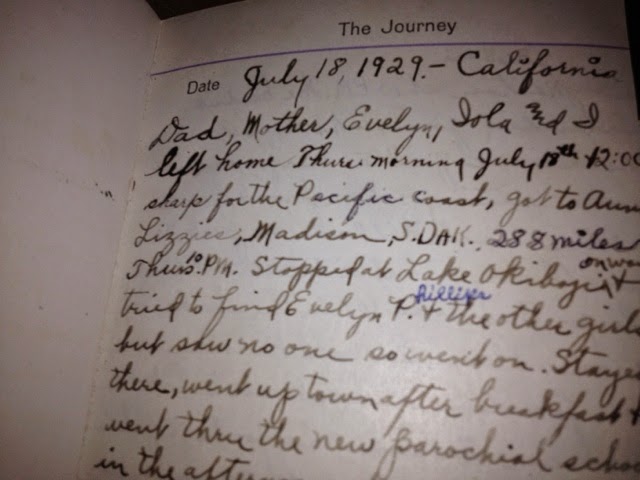 The Journey
Date July 18, 1929. - California
Dad, Mother, Evelyn, Iola and I
left home Thurs. morning July 18th 12:00
sharp for the Pacific coast, got to Aun
Lizzies, Madison, S.DAK. 288 miles
Thurs. 10 P.M. Stopped at Lake Okiboji on way &
tried to find Evelyn P. hillips & the other girls
but saw no one so went on. Stayed
there, went up town after breakfast &
went thru the new parochial schoo
in the afterno